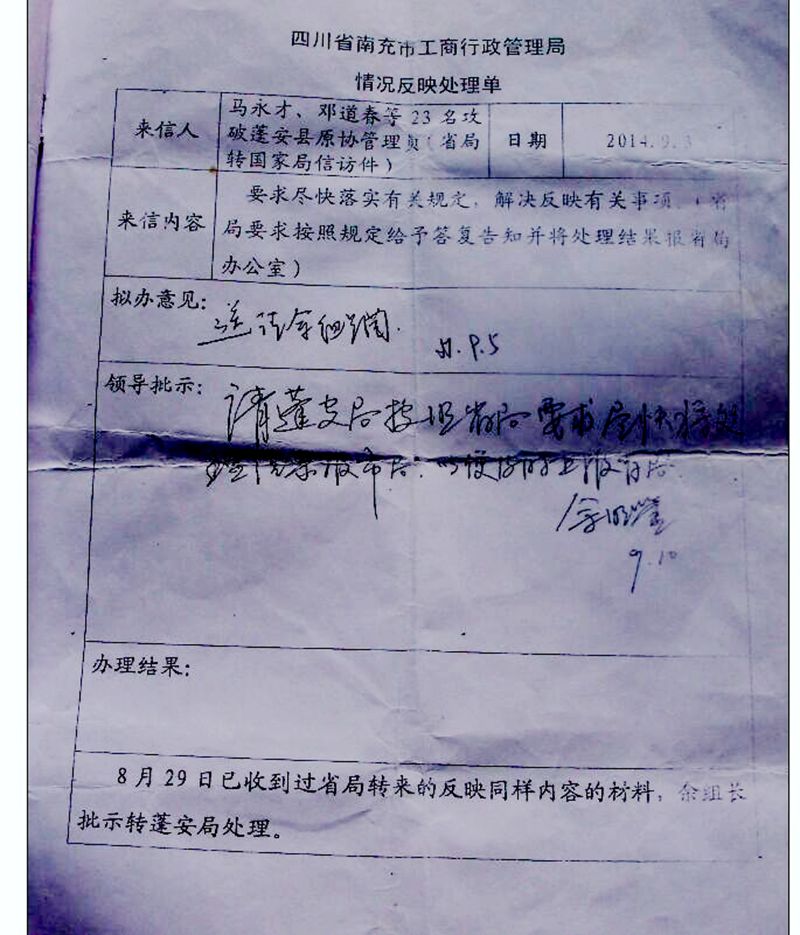 四川省南充市工商行政管理局
情况反映处理单
来信人
马永才、邓道春等23名攻
破蓬安县原协管理员(省局
转国家局信访件)
日期
2014.9.3
来信内容
要求尽快落实有关规定,解决反映有关事项。(省
局要求按照规定给予答复告知并将处理结果报省局
办公室)
拟办意见:
送请余组长阅.
9.5
领导批示:
请蓬安局按照省局要求尽快将处
理结果报市局,以便及时上报省局.
9.10
办理结果:
8月29日已收到过省局转来的反映同样内容的材料,余组长
批示转蓬安局处理。